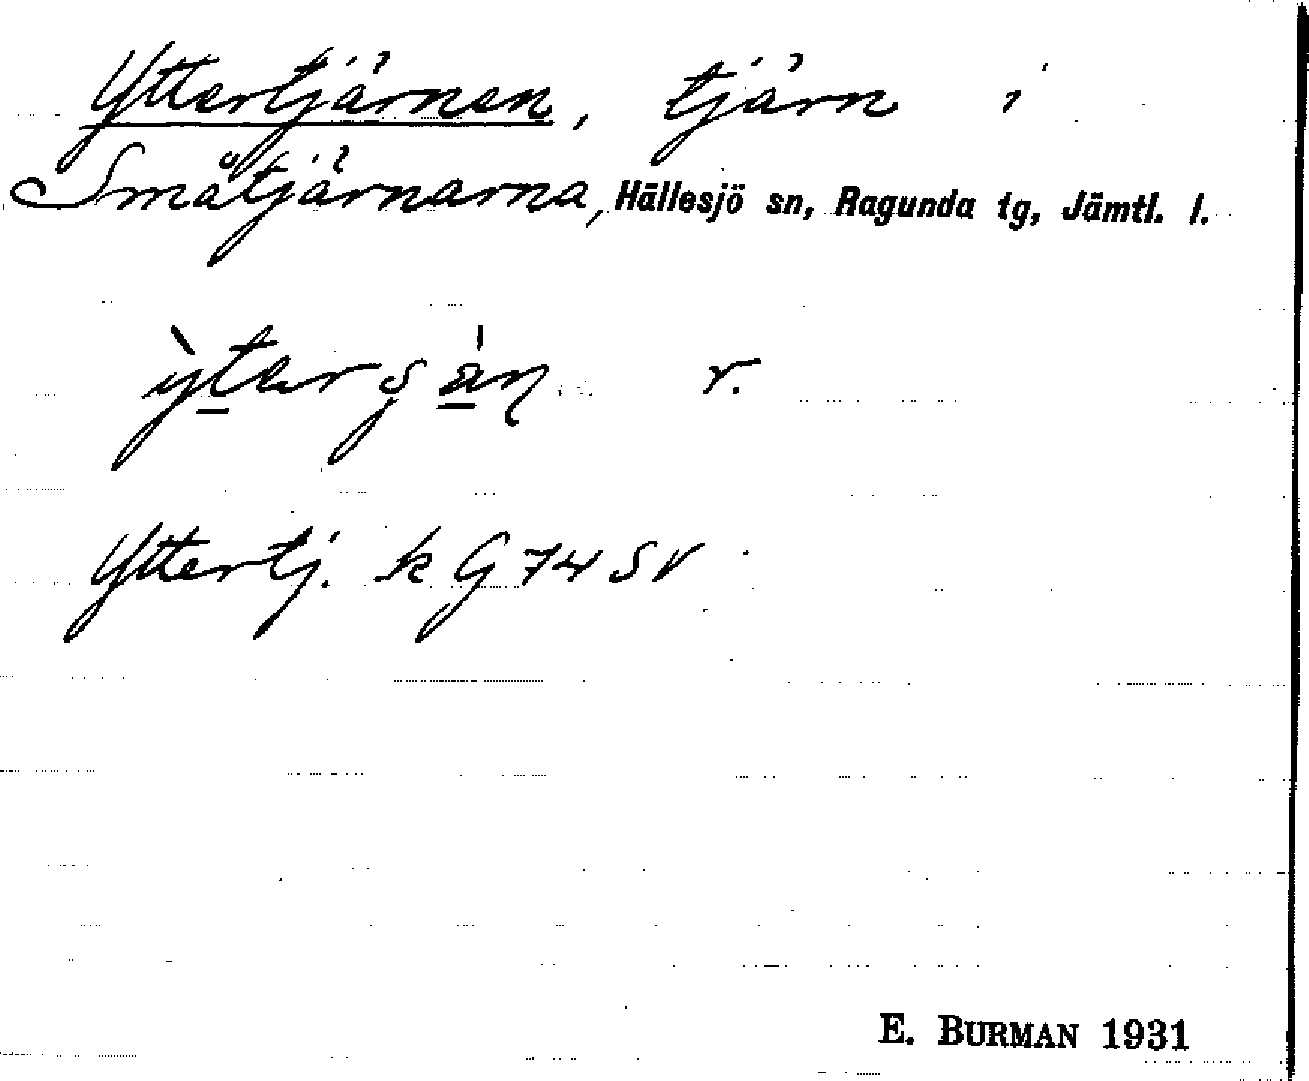 Yttertjärnen, tjärn i
Småtjärnarna, Hällesjö sn, Ragunda tg, Jämtl. l.
r.
Yttertj. k G 74 SV
E. BURMAN 1931